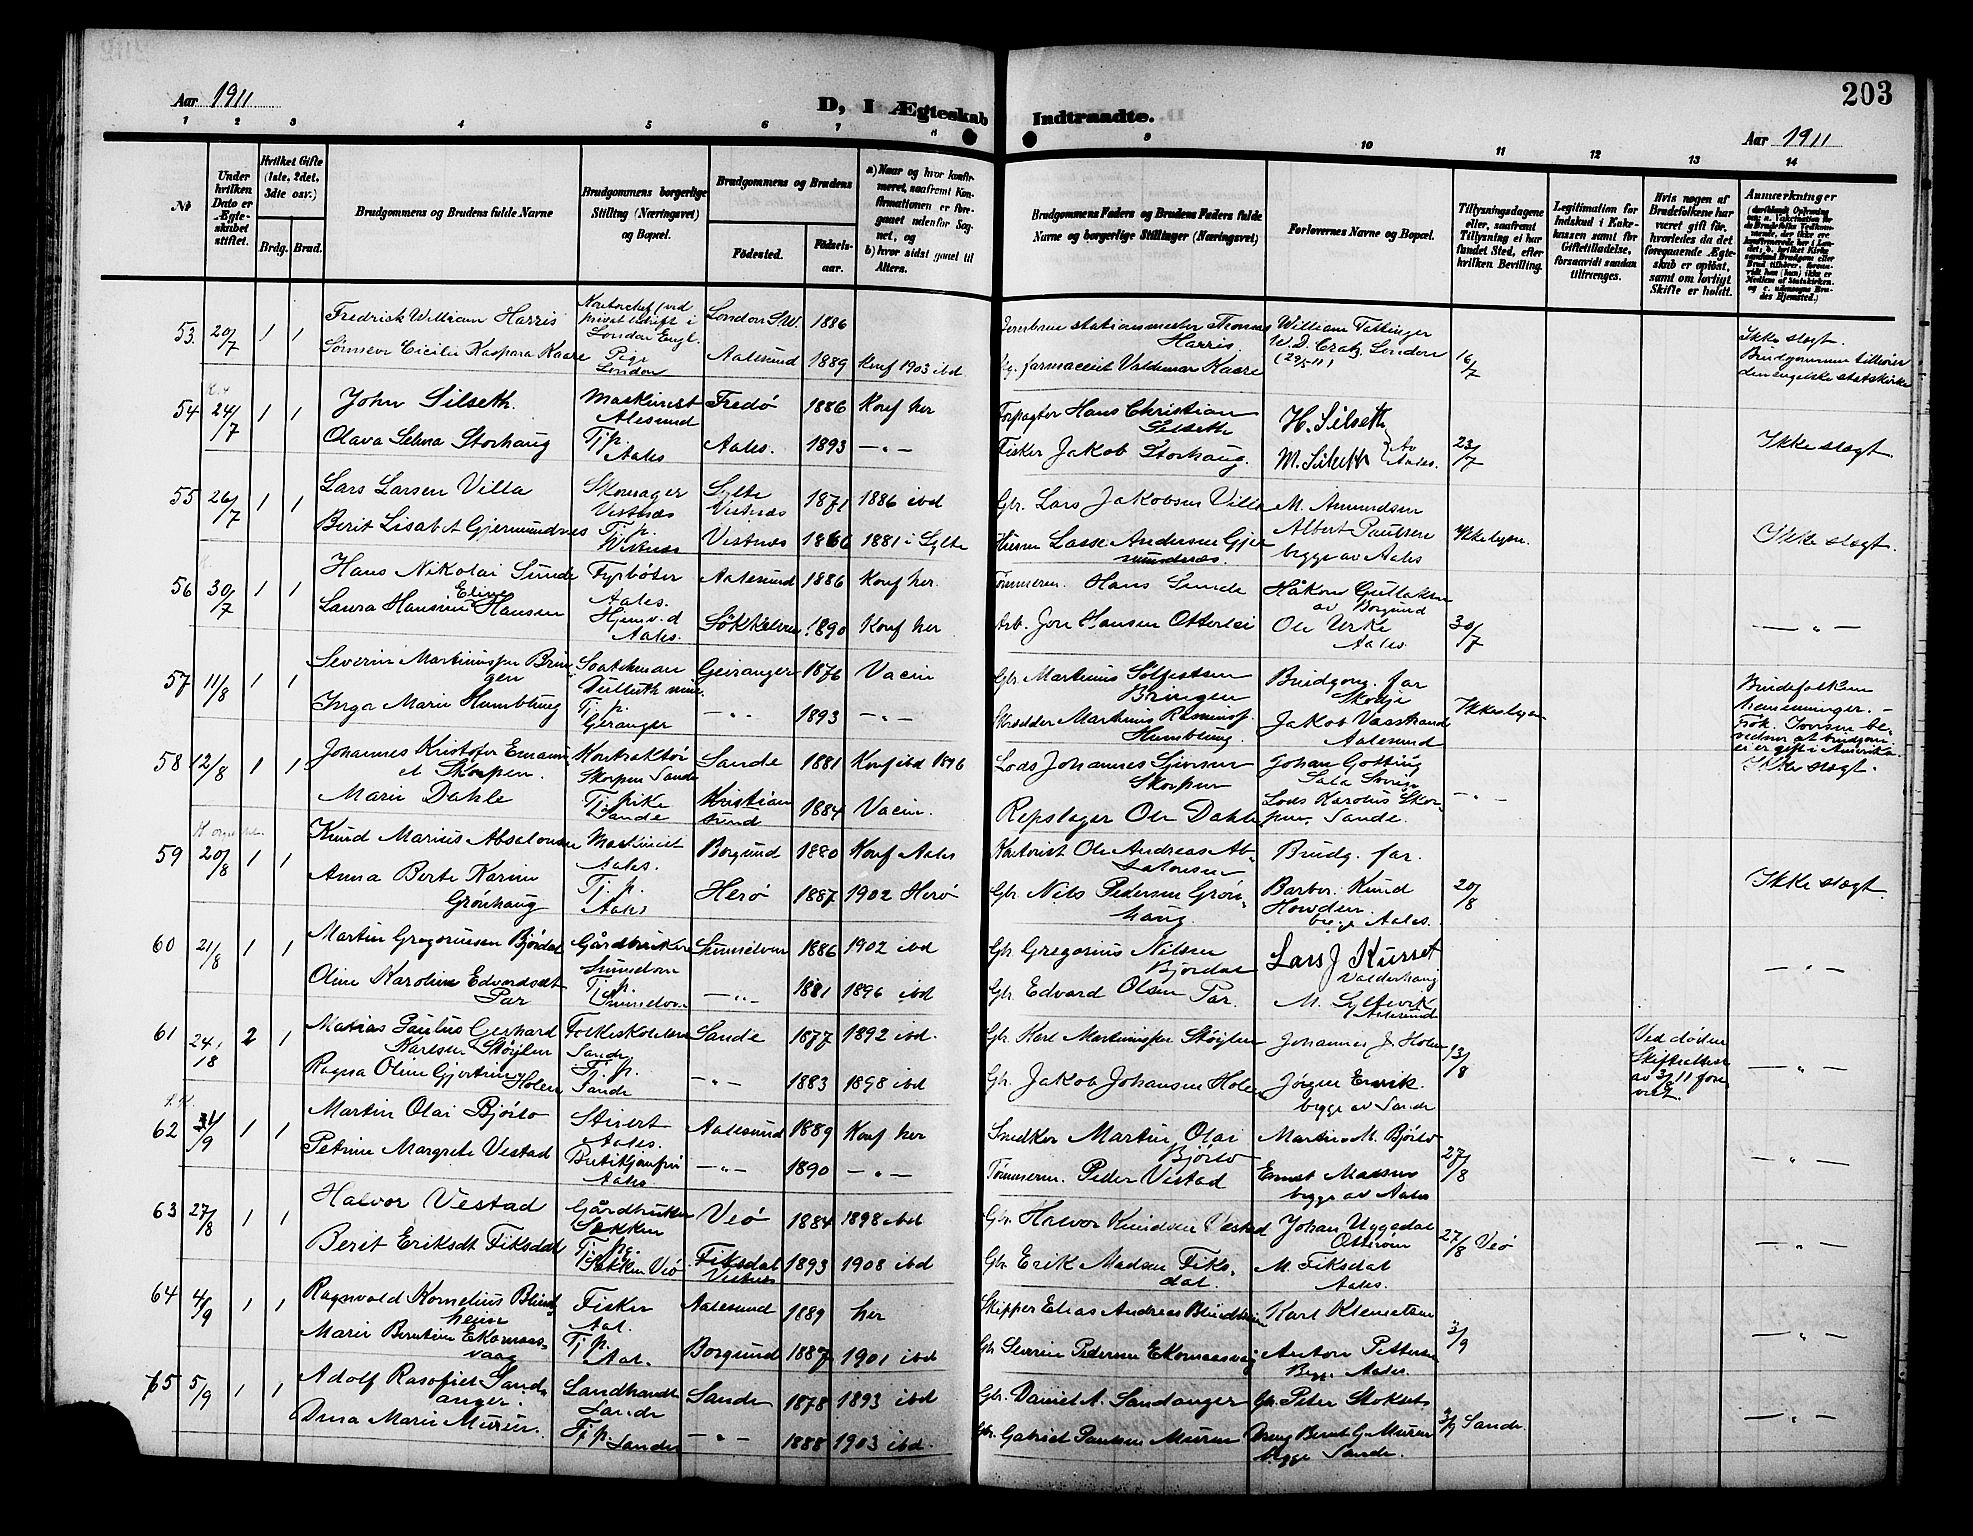 203
Aar 1911
D, I Ægteskab Indtraadte.
Aar 1911
1 2 3 4 5 6 7 8 9 10 11 12 13 14
№
Under hvilken Dato er Ægteskabet stiftet.
Hvilket Gifte (1ste, 2det, 3die osv.)
Brdg. Brud.
Brudgommens og Brudens fulde Navne
Brudgommens borgerlige Stilling (Næringsvei) og Bopæl.
Brudgommens og Brudens
Födested. Födselsaar.
a) Naar og hvor konfirmeret, saafremt Konfirmationen er foregaaet udenfor Sognet, og
b) hvor sidst gaaet til Alters.
Brudgommens Faders og Brudens Faders fulde Navne og borgerlige Stillinger (Næringsvei)
Forlovernes Navne og Bopæl.
Tillysningsdagene eller, saafremt Tillysning ei har fundet Sted, efter hvilken Bevilling.
Legitimation for Indskud i Enkekassen samt for Giftetilladelse, forsaavidt saadan tiltrænges.
Hvis nogen af Brudefolkene har været gift för, hvorledes da det foregaaende Ægteskab er oplöst, samt om lovligt Skifte er holdt.
Anmærkninger
53 20/7 1 1 Fredrick William Harris
London Engl. London S.W. 1886
stationsmester Thomas Harris William Tattinger
W. D. London
16/7 Ikke slægt.
Sønneva Cicilie Kaspara Kaare Pige London Aalesund 1889 Konf 1903 ibd
farmaceut Valdemar Kaare
Brudgommen tilhører den engelske statskirke
54 24/7 1 1 John Silseth. Maskinist Alesund Fredø 1886 Konf her
Forpagter Hans Christian Silseth H. Silseth
Olava Selma Storhaug Tj. p. Aales Aales. 1893 —"—
Fisker Jakob Storhaug. M. Silseth Av Aales. 23/7 Ikke slægt.
55 26/7 1 1 Lars Larsen Villa Skomager Vestnæs Sylte Vestnæs 1871 1886 ibd
Gbr. Lars Jakobsen Villa M. Amundsen
Berit Lisabet Gjermundnes Tj. p. Vestnæs Vestnæs 1866 1881 i Sylte
Lasse Andersen Gjermundnæs. Albert Paulsen begge av Aales Ikke lysn. Ikke slægt.
56 30/7 1 1 Hans Nikolai Sunde Fyrbøter Aales. Aalesund 1886 Konf her.
Tømmerm. Hans Sunde Håkon Gullaksen av Borgund
Laura Hansine Eline Hansen Hjemv. d Aales. 1890 Konf her
Arb. Jon Hansen Otterlei Ole Urke Aales. 30/7 — " —
57 11/8 1 1 Severin Martinussen Bringen Geiranger 1876 Vacin
Gbr. Martinus Bringen Brudgom. far Skodje
Inga Marie Humblung Tj. p. Geranger —"— 1893 —"—
Skrædder Martinus Humblung. Jakob Vasstrand Aalesund Ikke lysn
Brudefolkene
58 12/8 1 1 Johannes Kristofer Emanuel Skorpen. Kontraktør Skorpen Sande Sande 1881 Konf ibd 1896
Lods Johannes Skorpen Johan Gotting
Marie Dahle Tj. pike Sande Kristiansund 1884 Vacin.
Repslager Ole Dahle Lods Karolus Skorpen, Sande. — " — Ikke slægt.
59 20/8 1 1 Knud Marius Absalonsen Maskinist Aales. Borgund 1880 Konf Aales
Kontorist Ole Andreas Absalonsen Brudg. far.
Anna Berte Karine Grønhaug Tj. p. Aales Herø 1887 1902 Herø
Gbr. Nils Pedersen Grønhaug. Barber. Knud Howden. begge Aales. 20/8 Ikke slægt.
60 21/8 1 1 Martin Gregoriusen Bjørdal Gårdbruker 1886 1902 ibd
Gbr. Gregorius Nilsen Bjørdal Lars J Kursset Valderhaug
Oline Karoline Edvardsdt Par Tj. p. —"— 1881 1896 ibd
Gbr. Edvard Olsen Par. M. Syltevik Aalesund — " —
61 24/8 2 1 Matias Paulus Gerhard Karlsen Støylen Folkeskolelærer Sande Sande 1877 1892 ibd.
Gbr. Karl Martinussen Støylen Johannes J. Holen 13/8
Ved døden Skifteattest av 3/6 11 forevist.
Ragna Oline Gjertine Holen Tj. p. Sande —"— 1883 1898 ibd
Gbr. Jakob Johansen Holen Jørgen Ervik. begge av Sande — " —
62 3/9 1 1 Martin Olai Bjørlo Stuert Aales. Aalesund 1889 Konf her
Snedker Martin Olai Bjørlo Martin M. Bjørlo
Petrine Margrete Vestad Butikjomfru Aales —"— 1890 —"—
Tømmerm. Peder Vestad Ernst Madsen begge av Aales 27/8 — " —
63 27/8 1 1 Halvor Vestad Gårdbruker Sekken Veø 1884 1898 ibd
Gbr. Halvor Knudsen Vestad Johan Uggedal Otterøen
Berit Eriksdt Fiksdal Tj. p. Sekken Veø Fiksdal Vestnes 1893 1908 ibd
Gbr. Erik Madsen Fiksdal. M. Fiksdal Aales. 27/8 Veø — " —
64 4/9 1 1 Ragnvald Kornelius Blindheim Fisker Aal. Aalesund 1889 her
Skipper Elias Andreas Blindheim Karl Klemetsen
Marie Berntine Ekornæsvaag Tj. p. Aal. Borgund 1887 1901 ibd
Gbr. Severin Pedersen Ekornæsvåg Anton Pettersen Begge Aales. 3/9 — " —
65 5/9 1 1 Adolf Rasofiel Sandanger. Landhandler Sande Sande 1878 1893 ibd
Gbr. Daniel A. Sandanger Gbr. Peter Stokset
Anna Marie Muren. Tj. p. Sande —"— 1888 1903 ibd.
Gbr. Gabriel Paulsen Muren Dreng Bernt G. Muren begge Sande. 3/9 Sande. — " —